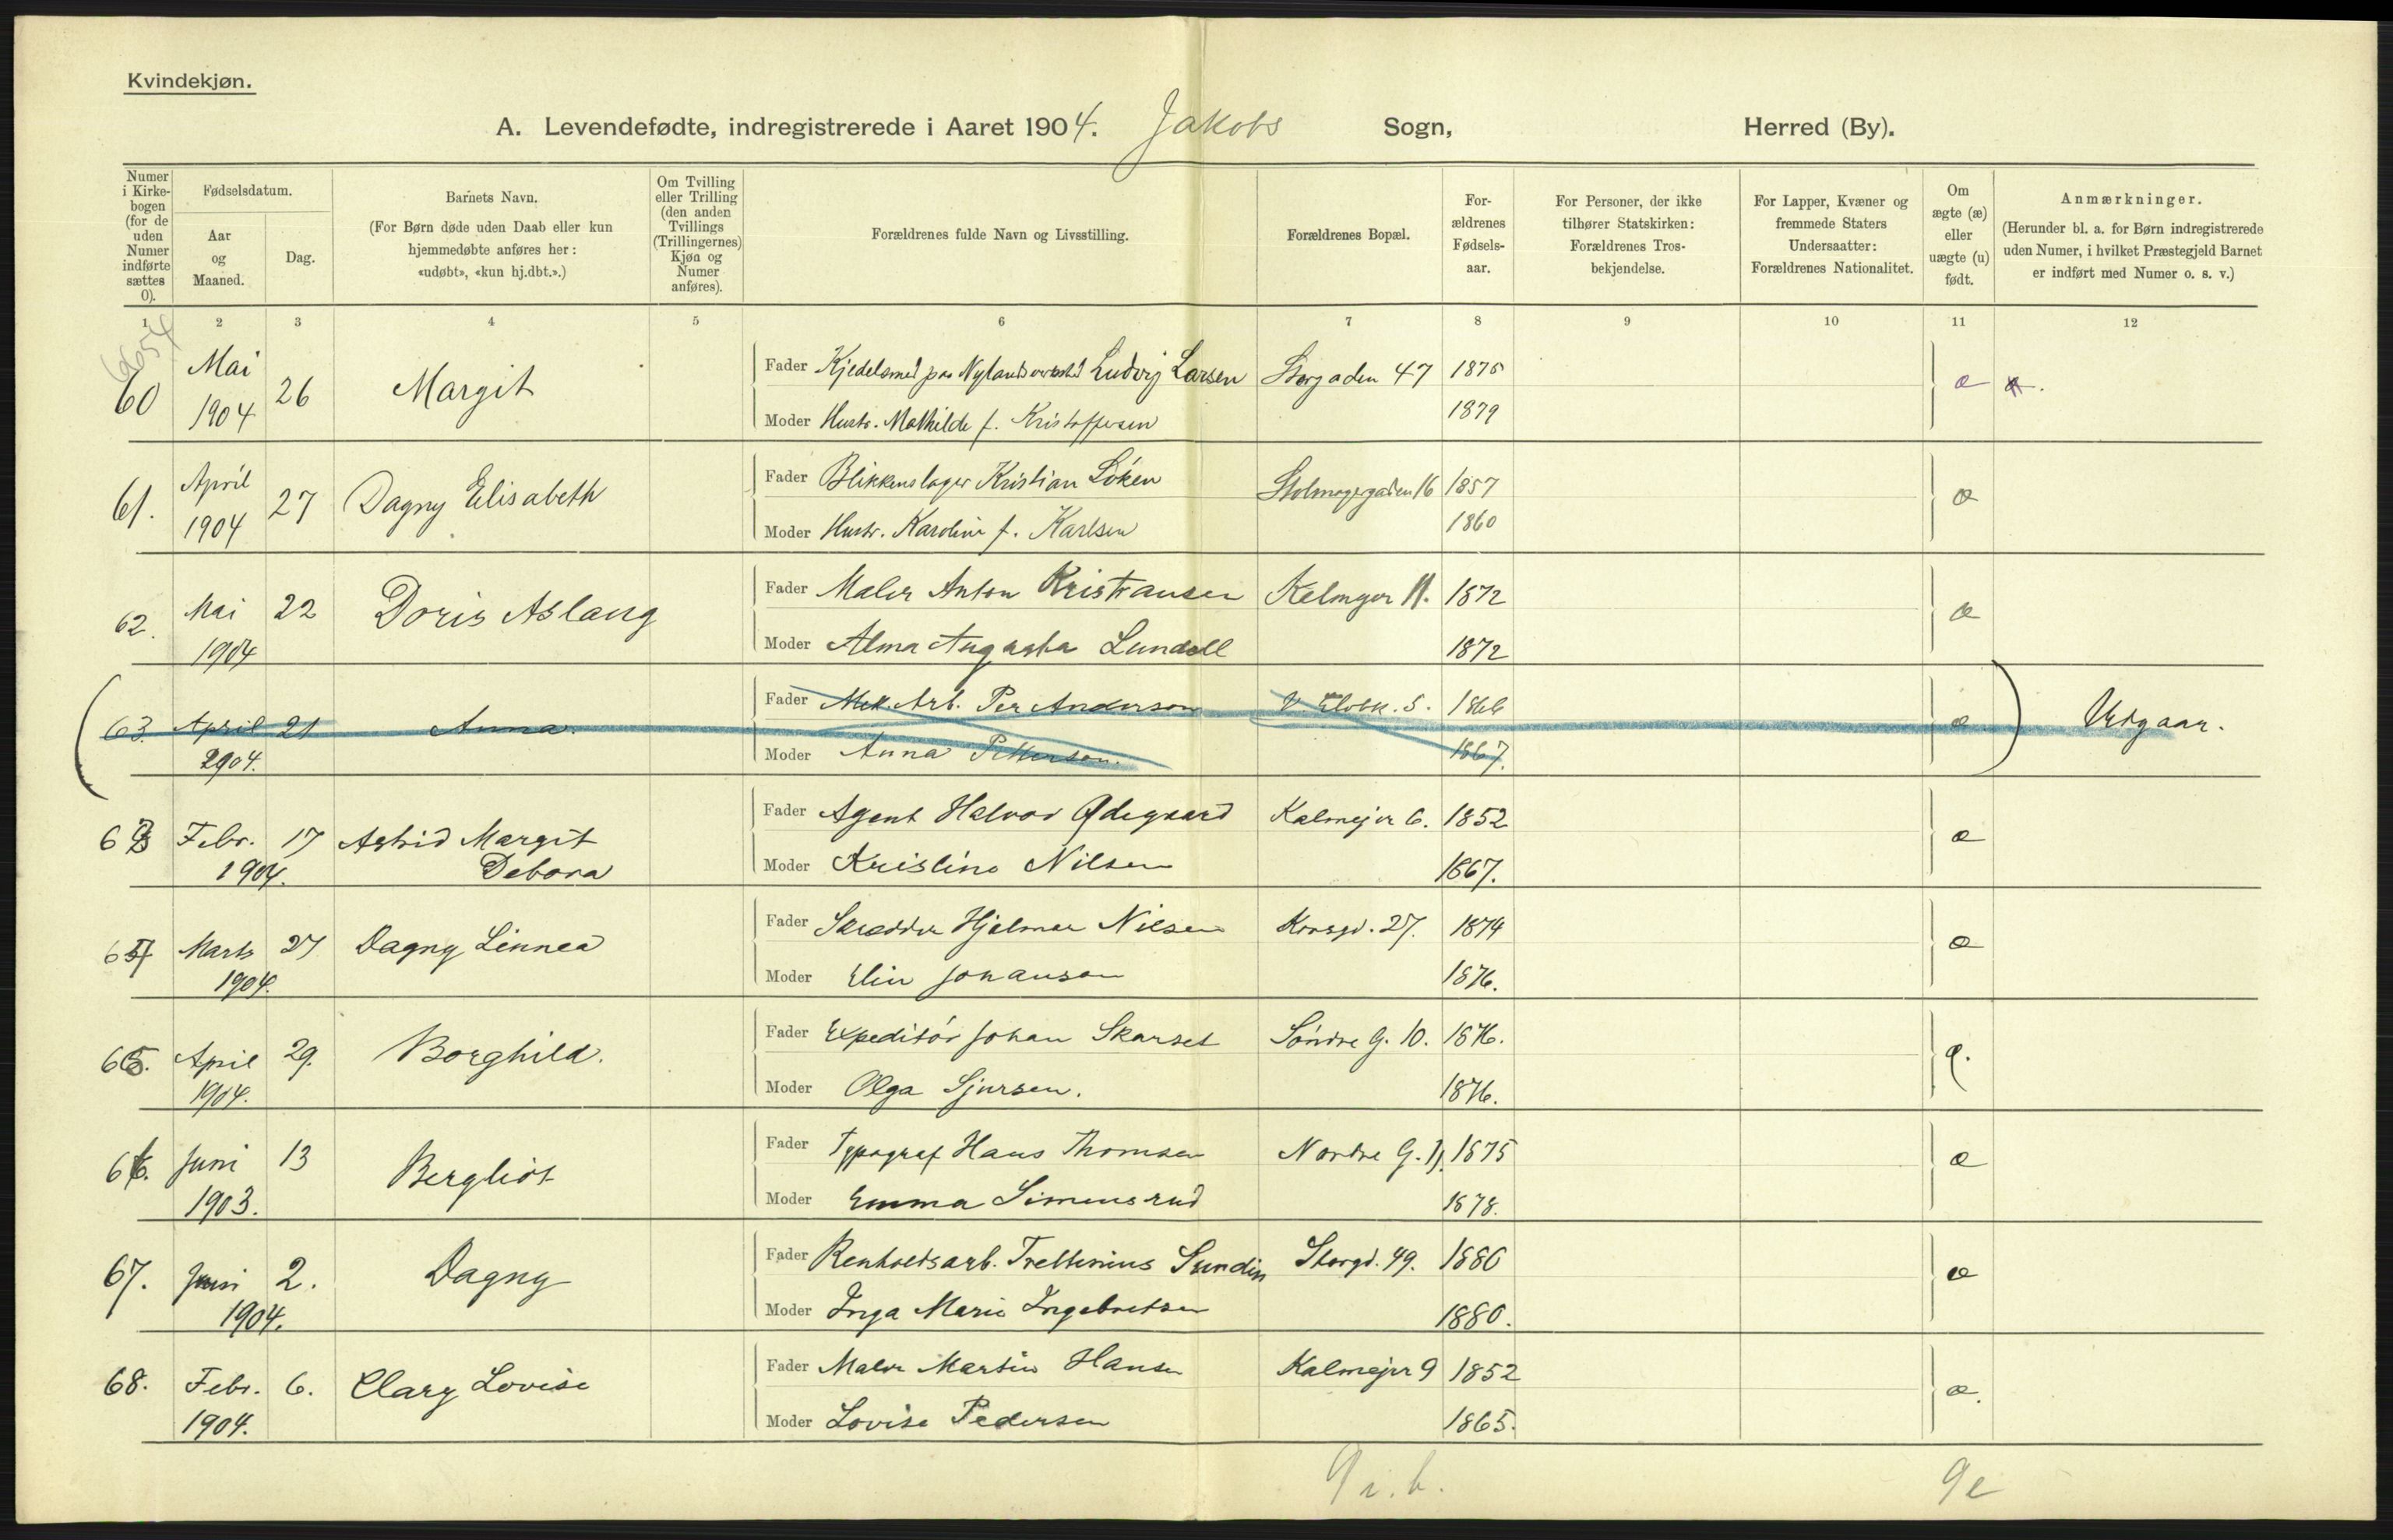 Kvindekjøn.
A. Levendefødte, indregistrerede i Aaret 1904. Jakobs Sogn, Herred (By).
Numer i Kirkebogen (for de uden Numer indførte sættes 0).
Fødselsdatum.
Aar og Maaned.
Dag.
Barnets Navn.
(For Børn døde uden Daab eller kun hjemmedøbte anføres her: «udøbt», «kun hj.dbt.».)
Om Tvilling eller Trilling (den anden Tvillings (Trillingernes) Kjøn og Numer anføres).
Forældrenes fulde Navn og Livsstilling.
Forældrenes Bopæl.
Forældrenes Fødselsaar.
For Personer, der ikke tilhører Statskirken: Forældrenes Trosbekjendelse.
For Lapper, Kvæner og fremmede Staters Undersaatter: Forældrenes Nationalitet.
Om ægte (æ) eller uægte (u) født.
Anmærkninger.
(Herunder bl. a. for Børn indregistrerede uden Numer, i hvilket Præstegjeld Barnet er indført med Numer o. s. v.)
1 2 3 4 5 6 7 8 9 10 11 12
60 Mai 1904 26 Margit Fader Kjedelsmed paa Nylands Ludvig Larsen Storgaden 47 1875 æ
Moder Hustr. Mathilde f. Kristoffersen 1879
61. April 1904 27 Dagny Elisabeth Fader Blikkenslager Kristian Löken 16 1857 æ
Moder Hustr. Karoline f. Karlsen 1860
62. Mai 1904 22 Doris Aslaug Fader Maler Anton Kristiansen 11. 1872 æ
Moder Alma Augusta Lundell 1872
63. April 2904. 21 Anna. Fader Mek. Arb. Per Anderson 5. 1866 æ Udgaar.
Moder Anna Petterson. 1867.
63 Febr. 1904. 17 Astrid Margit Debora Fader Agent Halvor Ødegaard Kalmejer 6. 1852 æ
Moder Kristine Nilsen 1867.
64 Marts 1904. 27 Dagny Linnea Fader Skrædder Hjalmar Nilsen Korsgd. 27. 1874 æ
Moder Elin Johanson 1876.
65. April 1904. 29. Borghild. Fader Expeditör Johan Skarset Söndre G. 10. 1876. æ.
Moder Olga Sjursen. 1876.
66. Juni 1903. 13 Bergliot Fader Typograf Hans Thomsen Nordre G. 1875 æ
Moder Emma Simensrud 1878.
67. Juni 1904. 2. Dagny Fader Renholdsarb. Sundin Storgd. 49. 1880 æ
Moder Inga Marie Ingebretsen 1880.
68. Febr. 1904. 6. Clary Lovise Fader Maler Martin Hansen Kalmejer 9 1852 æ.
Moder Lovise Pedersen 1865.
9 i. b. 9 e